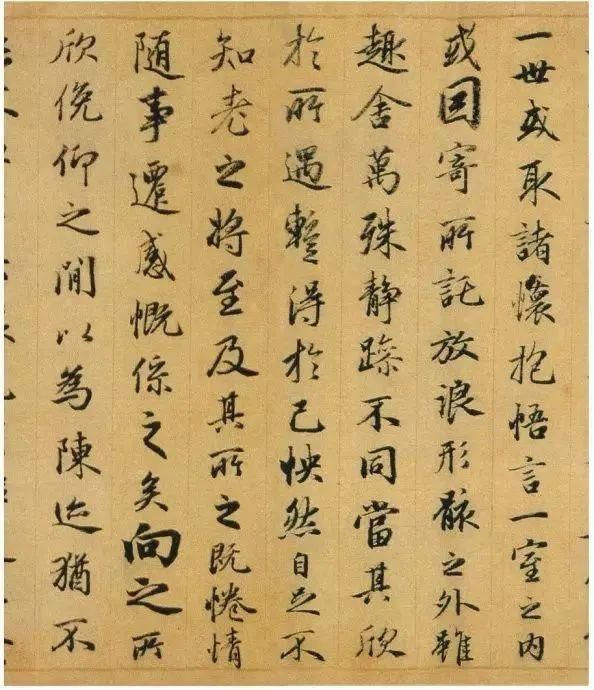 一世或取諸懷抱悟言一室之内
或因寄所託放浪形骸之外雖
趣舍萬殊静躁不同當其欣
於所遇蹔得於己怏然自足不
知老之將至及其所之既惓情
随事遷感慨係之矣向之所
欣俛仰之閒以為陳迹猶不